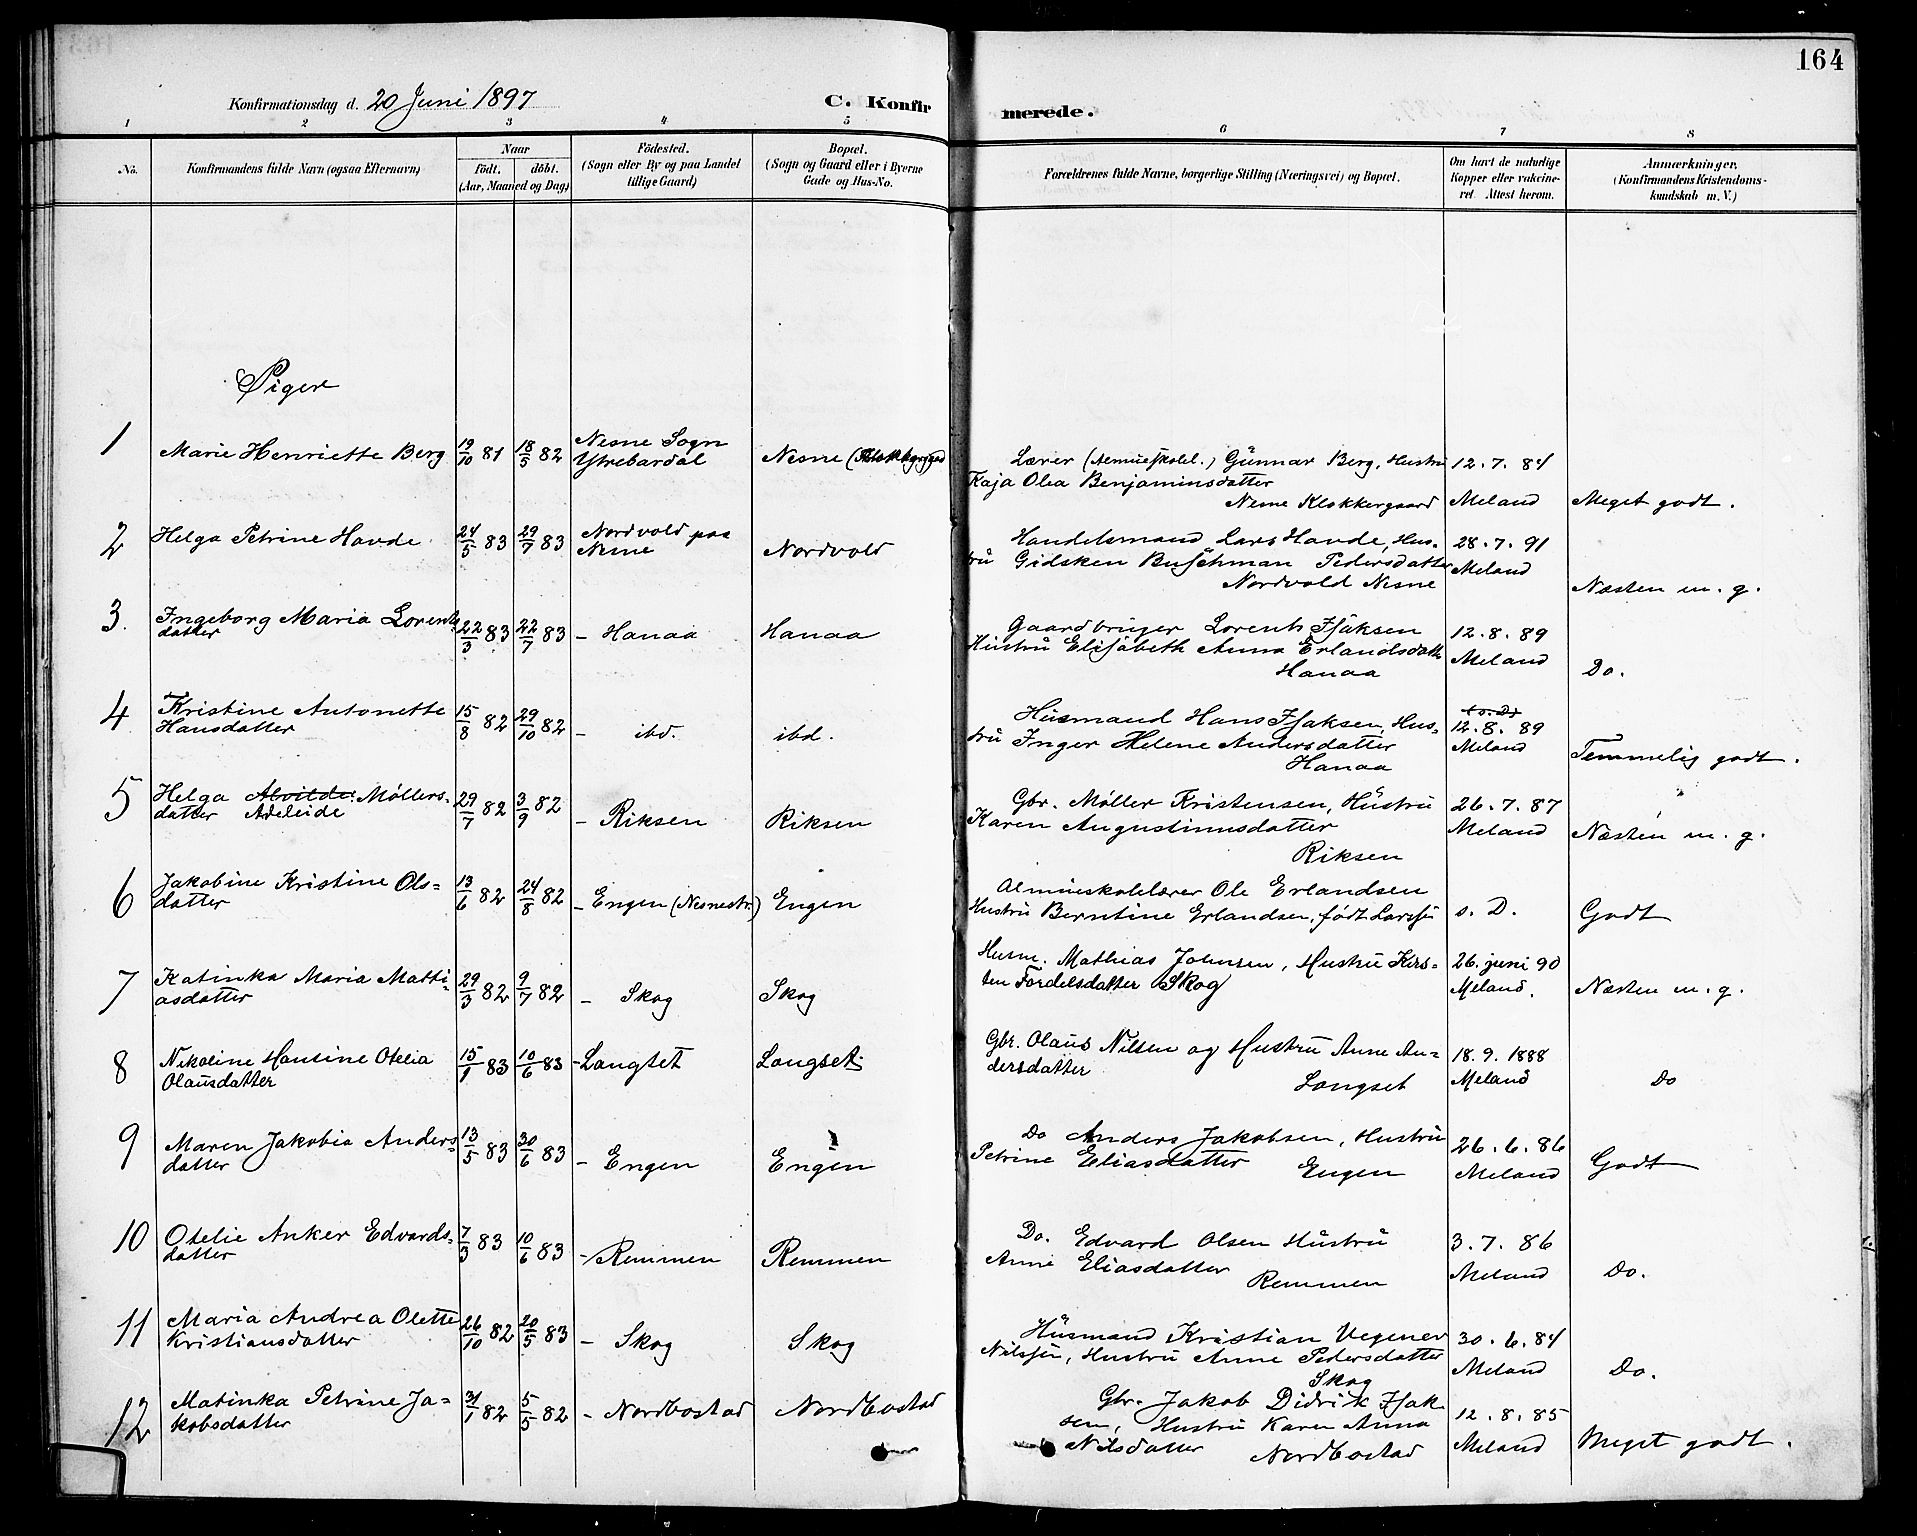 164
Konfirmationsdag d. 20 Juni 1897
C. Konfirmerede.
1 2 3 4 5 6 7 8
No.
Konfirmandens fulde Navn (ogsaa Efternavn)
Naar
födt. döbt.
(Aar, Maaned og Dag)
Födested.
(Sogn eller By og paa Landet
tillige Gaard)
Bopæl.
(Sogn og Gaard eller i Byerne
Gade og Hus-No.
Forældrenes fulde Navne, borgerlige Stilling (Næringsvei) og Bopæl.
Om havt de naturlige
Kopper eller vakcine-
ret. Attest herom.
Anmærkninger.
(Konfirmandens Kristendoms-
kundskab m. V.)
Piger
1 Marie Henriette Berg 19/10 81 18/5 82
Nesne Sogn
Ytrebardal
Nesne (Klokkergaard
Lærer (Almueskolel.) Gunnar Berg, Hustru
Kaja Olea Benjaminsdatter
Nesne Klokkergaard
12.7.84
Meland
Meget godt.
2 Helga Petrine Havde 24/5 83 29/7 83
Nordvold paa
Nesne
Nordvold
Handelsmand Lars Havde, Hus-
tru Gidsken Buschman Pedersdatter
Nordvold Nesne
28.7.91
Meland
Næsten m. g.
3. Ingeborg Maria Lorents-
datter
22/3 83 22/7 83 - Hanaa Hanaa
Gaardbruger Lorents Isaksen
Hustru Elisabeth Anna Erlandsdatt
Hanaa
12.8.89
Meland
Do.
4 Kristine Antonette
Hansdatter
15/8 82 29/10 82 - ibd. ibd.
Husmand Hans Isaksen, Hus-
tru Inger Helene Andersdatter
Hanaa
12.8.89
Meland
Temmelig godt.
5 Helga Alvilde Møllers-
datter Adeleide
29/7 82 3/9 82 - Riksen Riksen
Gbr. Møller Kristensen, Hustru
Karen Augustinusdatter
Riksen
26.7.87
Meland
Næsten m. g.
6 Jakobine Kristine Ols-
datter
13/6 82 24/8 82 - Engen (Nesnestr.) Engen
Almueskolelærer Ole Erlandsen
Hustru Berntine Erlandsen, født Larssen
s. D.
Godt
7 Katinka Maria Matti-
asdatter
29/3 82 9/7 82 - Skog Skog
Husm. Mathias Johnsen, Hustru Kirs-
ten Fordelsdatter Skog
26. juni 90
Meland.
Næsten m. g.
8 Nikoline Hansine Otelia
Olausdatter
15/1 83 10/6 83 - Langset Langset
Gbr. Olaus Nilsen og Hustru Anne An-
dersdatter
Langset
18.9.1888
Meland
Do
9 Maren Jakobia Anders-
datter
13/5 83 30/6 83 - Engen Engen
Do Anders Jakobsen, Hustru
Petrine Eliasdatter
Engen
26.6.86
Meland
Godt
10 Otelie Anker Edvards-
datter
7/3 83 10/6 83 - Remmen Remmen
Do. Edvard Olsen Hustru
Anne Eliasdatter
Remmen
3.7.86
Meland
Do.
11 Maria Andrea Olette
Kristiansdatter
26/10 82 20/5 83 - Skog Skog
Husmand Kristian Vegener
Nilssen, Hustru Anne Pedersdatter
Skog
30.6.84
Meland
Do.
12 Matinka Petrine Ja-
kobsdatter
31/1 82 5/5 82 - Nordbostad Nordbostad
Gbr. Jakob Didrik Isak
sen, Hustru Karen Anna
Nilsdatter Nordbostad
12.8.85
Meland
Meget godt.